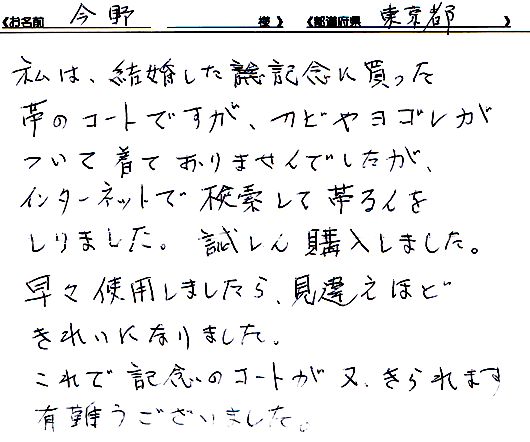 《お名前 今野 様》 《都道府県 東京都 》
私は、結婚した記念に買った
革のコートですが、カビやヨゴレが
ついて着ておりませんでしたが、
インターネットで検索して革るんを
しりました。試しん購入しました。
早々使用しましたら、見違えほど
きれいになりました。
これで記念のコートが又、きられます
有難うございました。